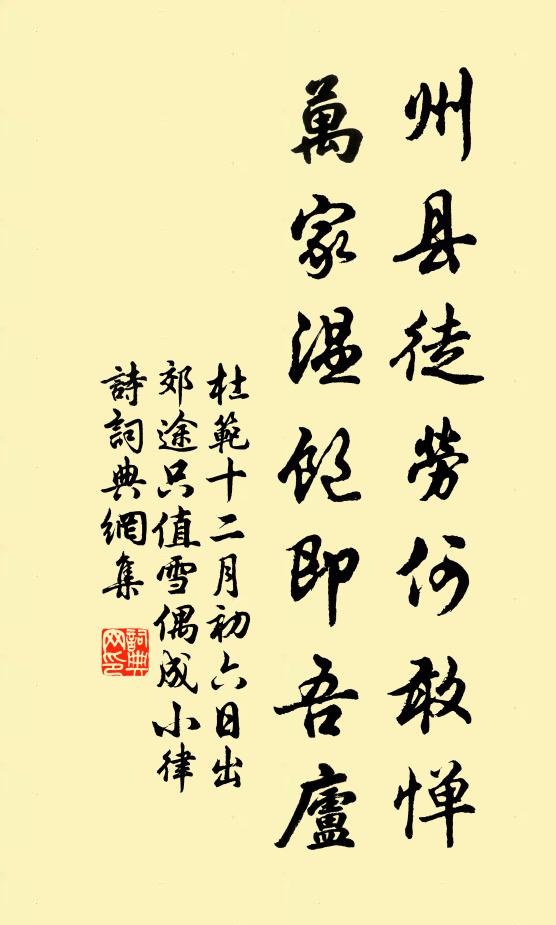 州县徒勞何敢惮
萬家温飽即吾廬
杜範十二月初六日出
郊途只值雪偶成小律
詩詞典網集
詞典网印